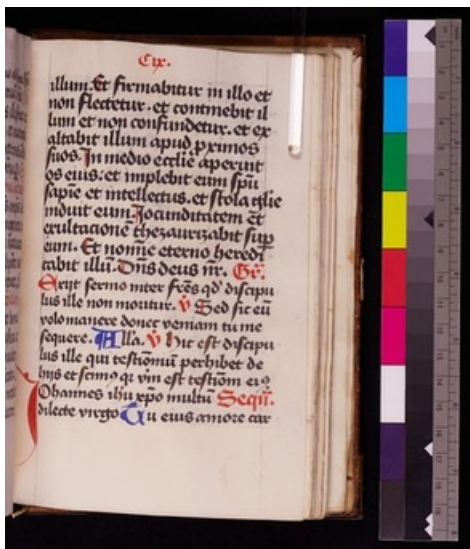 Cix.
illum. Et firmabitur in illo et
non flectetur. et continebit il
lum et non confundetur. et ex
altabit illum apud p̱ximos
suos. In medio eccl̄ie aperuit
os eius. et implebit eum sp̄u
sapiē et intellectus. et stola gl̄ie
induit eum. Jocunditatem et̄
exultacionē thezaurizabit sup̱
eum. Et nomīe eterno heredi
tabit illū. Dn̄s deus nr̄. Gr̄.
Exiit sermo inter fr̄es qd̓ discipu
lus ille non moritur. v̓ Sed sic eū
volo manere donec veniam tu me
sequere. Alla. v̓ Hic est discipu
lus ille qui testiomiū perhibet de
hijs et scimꝰ qꝛ vm̄ est testiom̄ eiꝰ
Johannes ihu xp̄o multū Sequn̄.
dilecte virgo Tu eius amore car